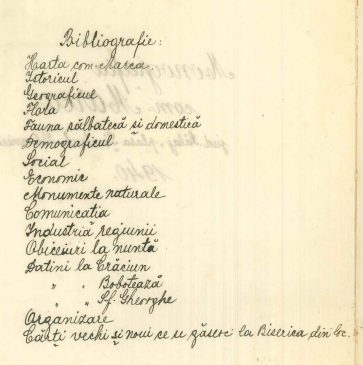 Bibliografie:
Harta com. Marca
Istoricul
Geograficul
Flora
Fauna sălbatecă și domestică
Demograficul
Social
Economic
Monumente naturale
Comunicația
Industria regiunii
Obiceiuri la nuntă
Datini la Crăciun
" " Bobotează
" " Sf. Gheorghe
Organizare
Cărți vechi și noui ce se găsesc la Biserica din loc.
1940.